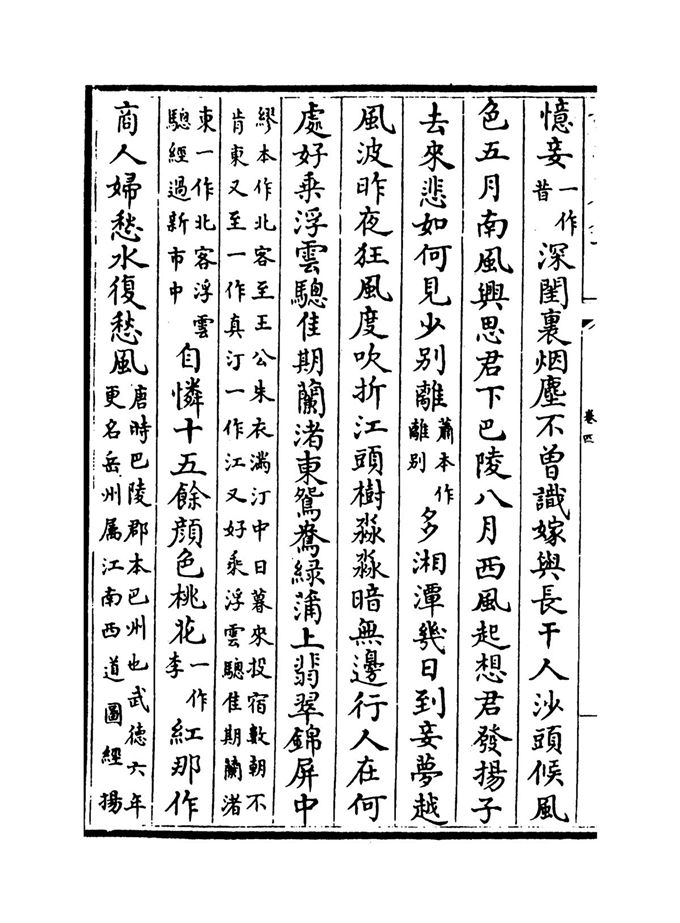 憶妾一作昔深閨裏烟塵不曾識嫁與長干人沙頭候風
色五月南風興思君下巴陵八月西風起想君發揚子
去來悲如何見少別離蕭本作離別多湘潭幾日到妾夢越
風波昨夜狂風度吹折江頭樹淼淼暗無邊行人在何
處好乘浮雲驄佳期蘭渚東鴛鴦綠蒲上翡翠錦屏中
繆本作北客至王公朱衣滿汀中日暮來投宿數朝不
肯東又至一作真汀一作江又好乘浮雲驄佳期蘭渚
東一作北客浮雲驄經過新市中自憐十五餘顔色桃花一作李紅那作
商人婦愁水復愁風唐時巴陵郡本巴州也武德六年更名岳州属江南西道圖經揚
卷四